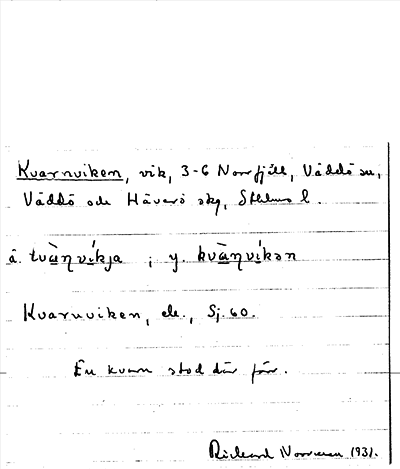 Kvarnviken, vik, 3-6 Norrfjäll, Väddö sn,
Väddö och Häverö skg, Sthlms l.
ä. tvàṇvíkja ; y. kvàṇvíkən
Kvarnviken, ek., Sj. 60.
En kvarn stod där förr.
Rickard Norrman 1931.